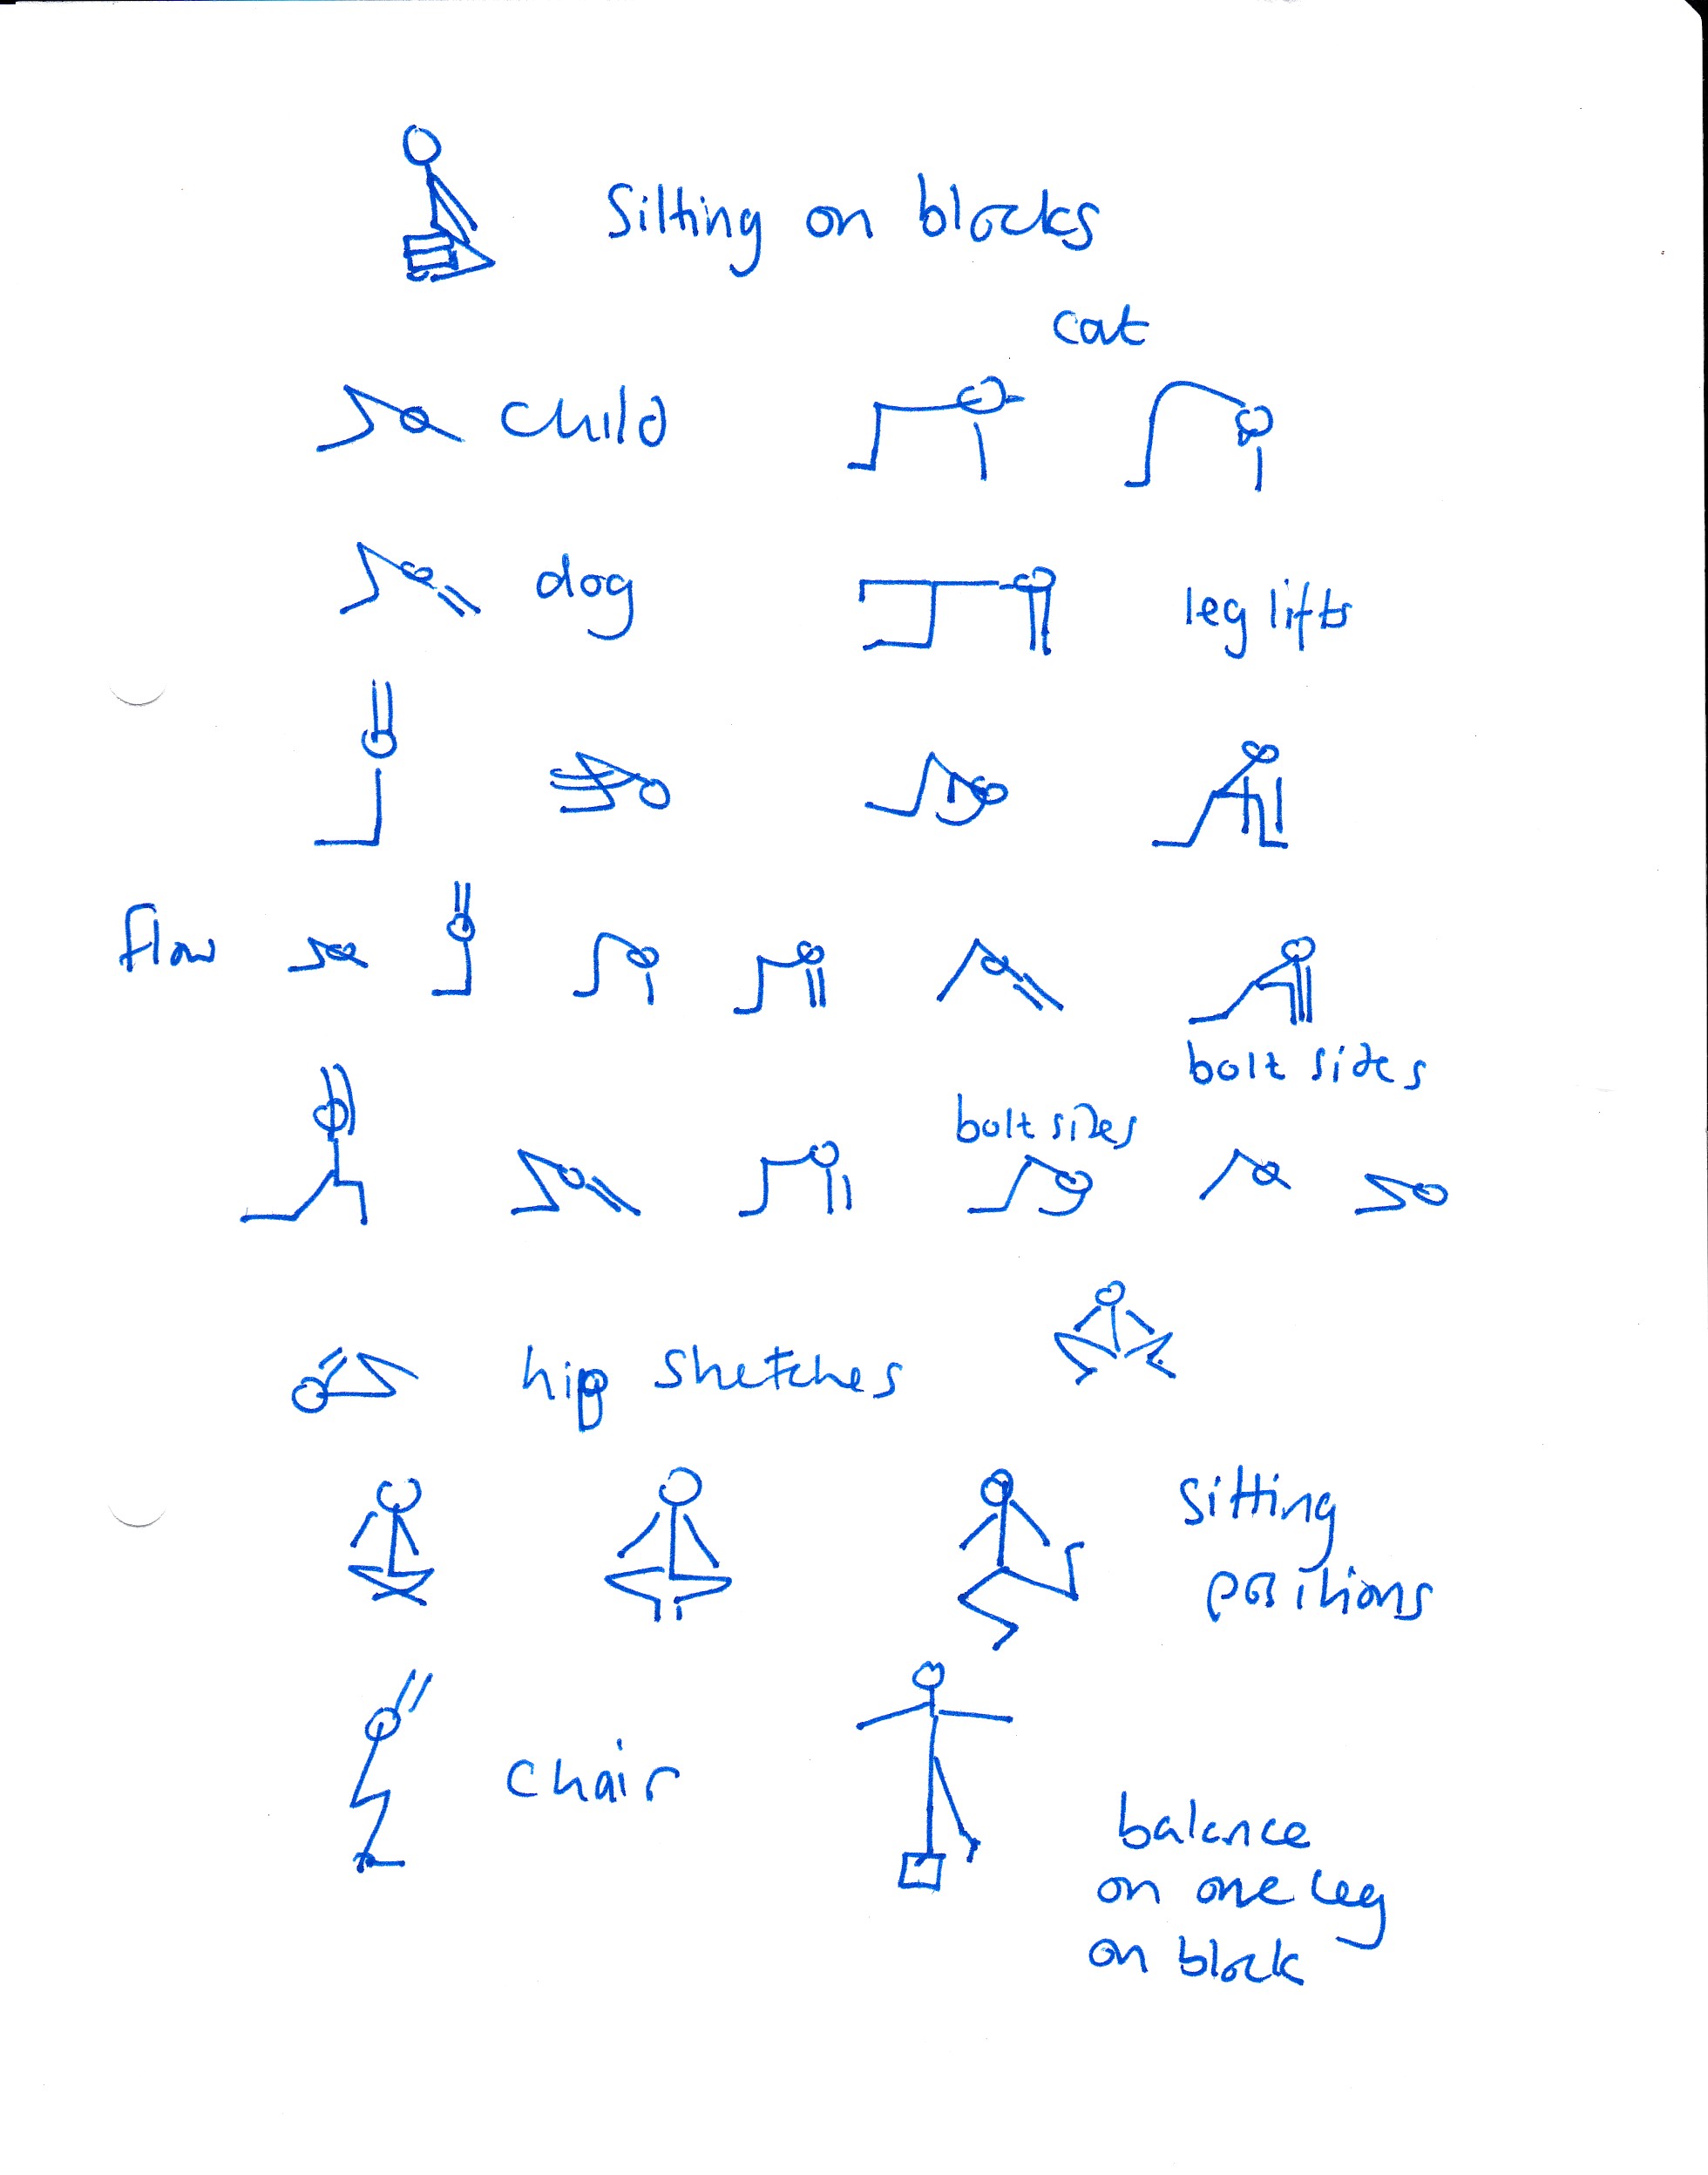 Sitting on blocks
cat
child
dog
leg lifts
flow
bolt sides
bolt sides
hip stretches
sitting
positions
chair
balance
on one leg
on block